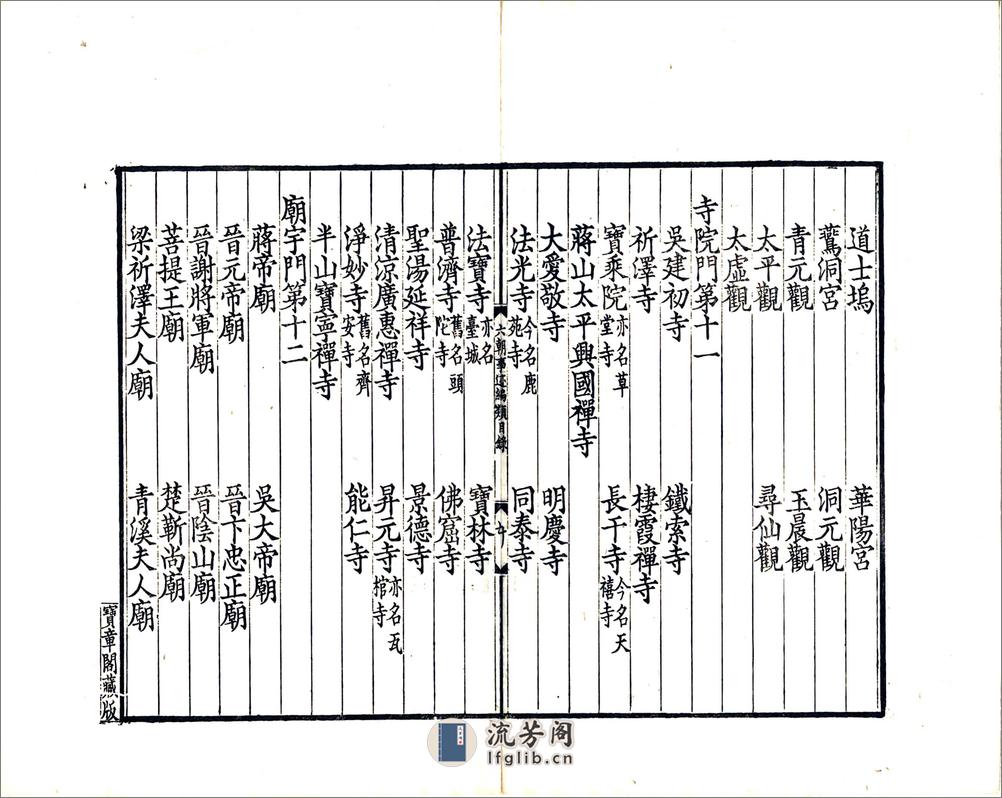 道士塢 華陽宮
鶩洞宮 洞元觀
青元觀 玉晨觀
太平觀 尋仙觀
太虛觀
寺院門第十一
吳建初寺 鐵索寺
祈澤寺 棲霞禪寺
寶乘院亦名草堂寺 長干寺今名天禧寺
蔣山太平興國禪寺
大愛敬寺 明慶寺
法光寺今名鹿苑寺 同泰寺
六朝事迹編類目錄 五
法寶寺亦名臺城 寶林寺
普濟寺舊名頭陀寺 佛窟寺
聖湯延祥寺 景德寺
清涼廣惠禪寺 昇元寺亦名瓦棺寺
淨妙寺舊名齊安寺 能仁寺
半山寶寧禪寺
廟宇門第十二
蔣帝廟 吳大帝廟
晉元帝廟 晉卞忠正廟
晉謝將軍廟 晉陰山廟
菩提王廟 楚靳尚廟
梁祈澤夫人廟 青溪夫人廟
寶章閣藏版
流芳阁
lfglib.cn